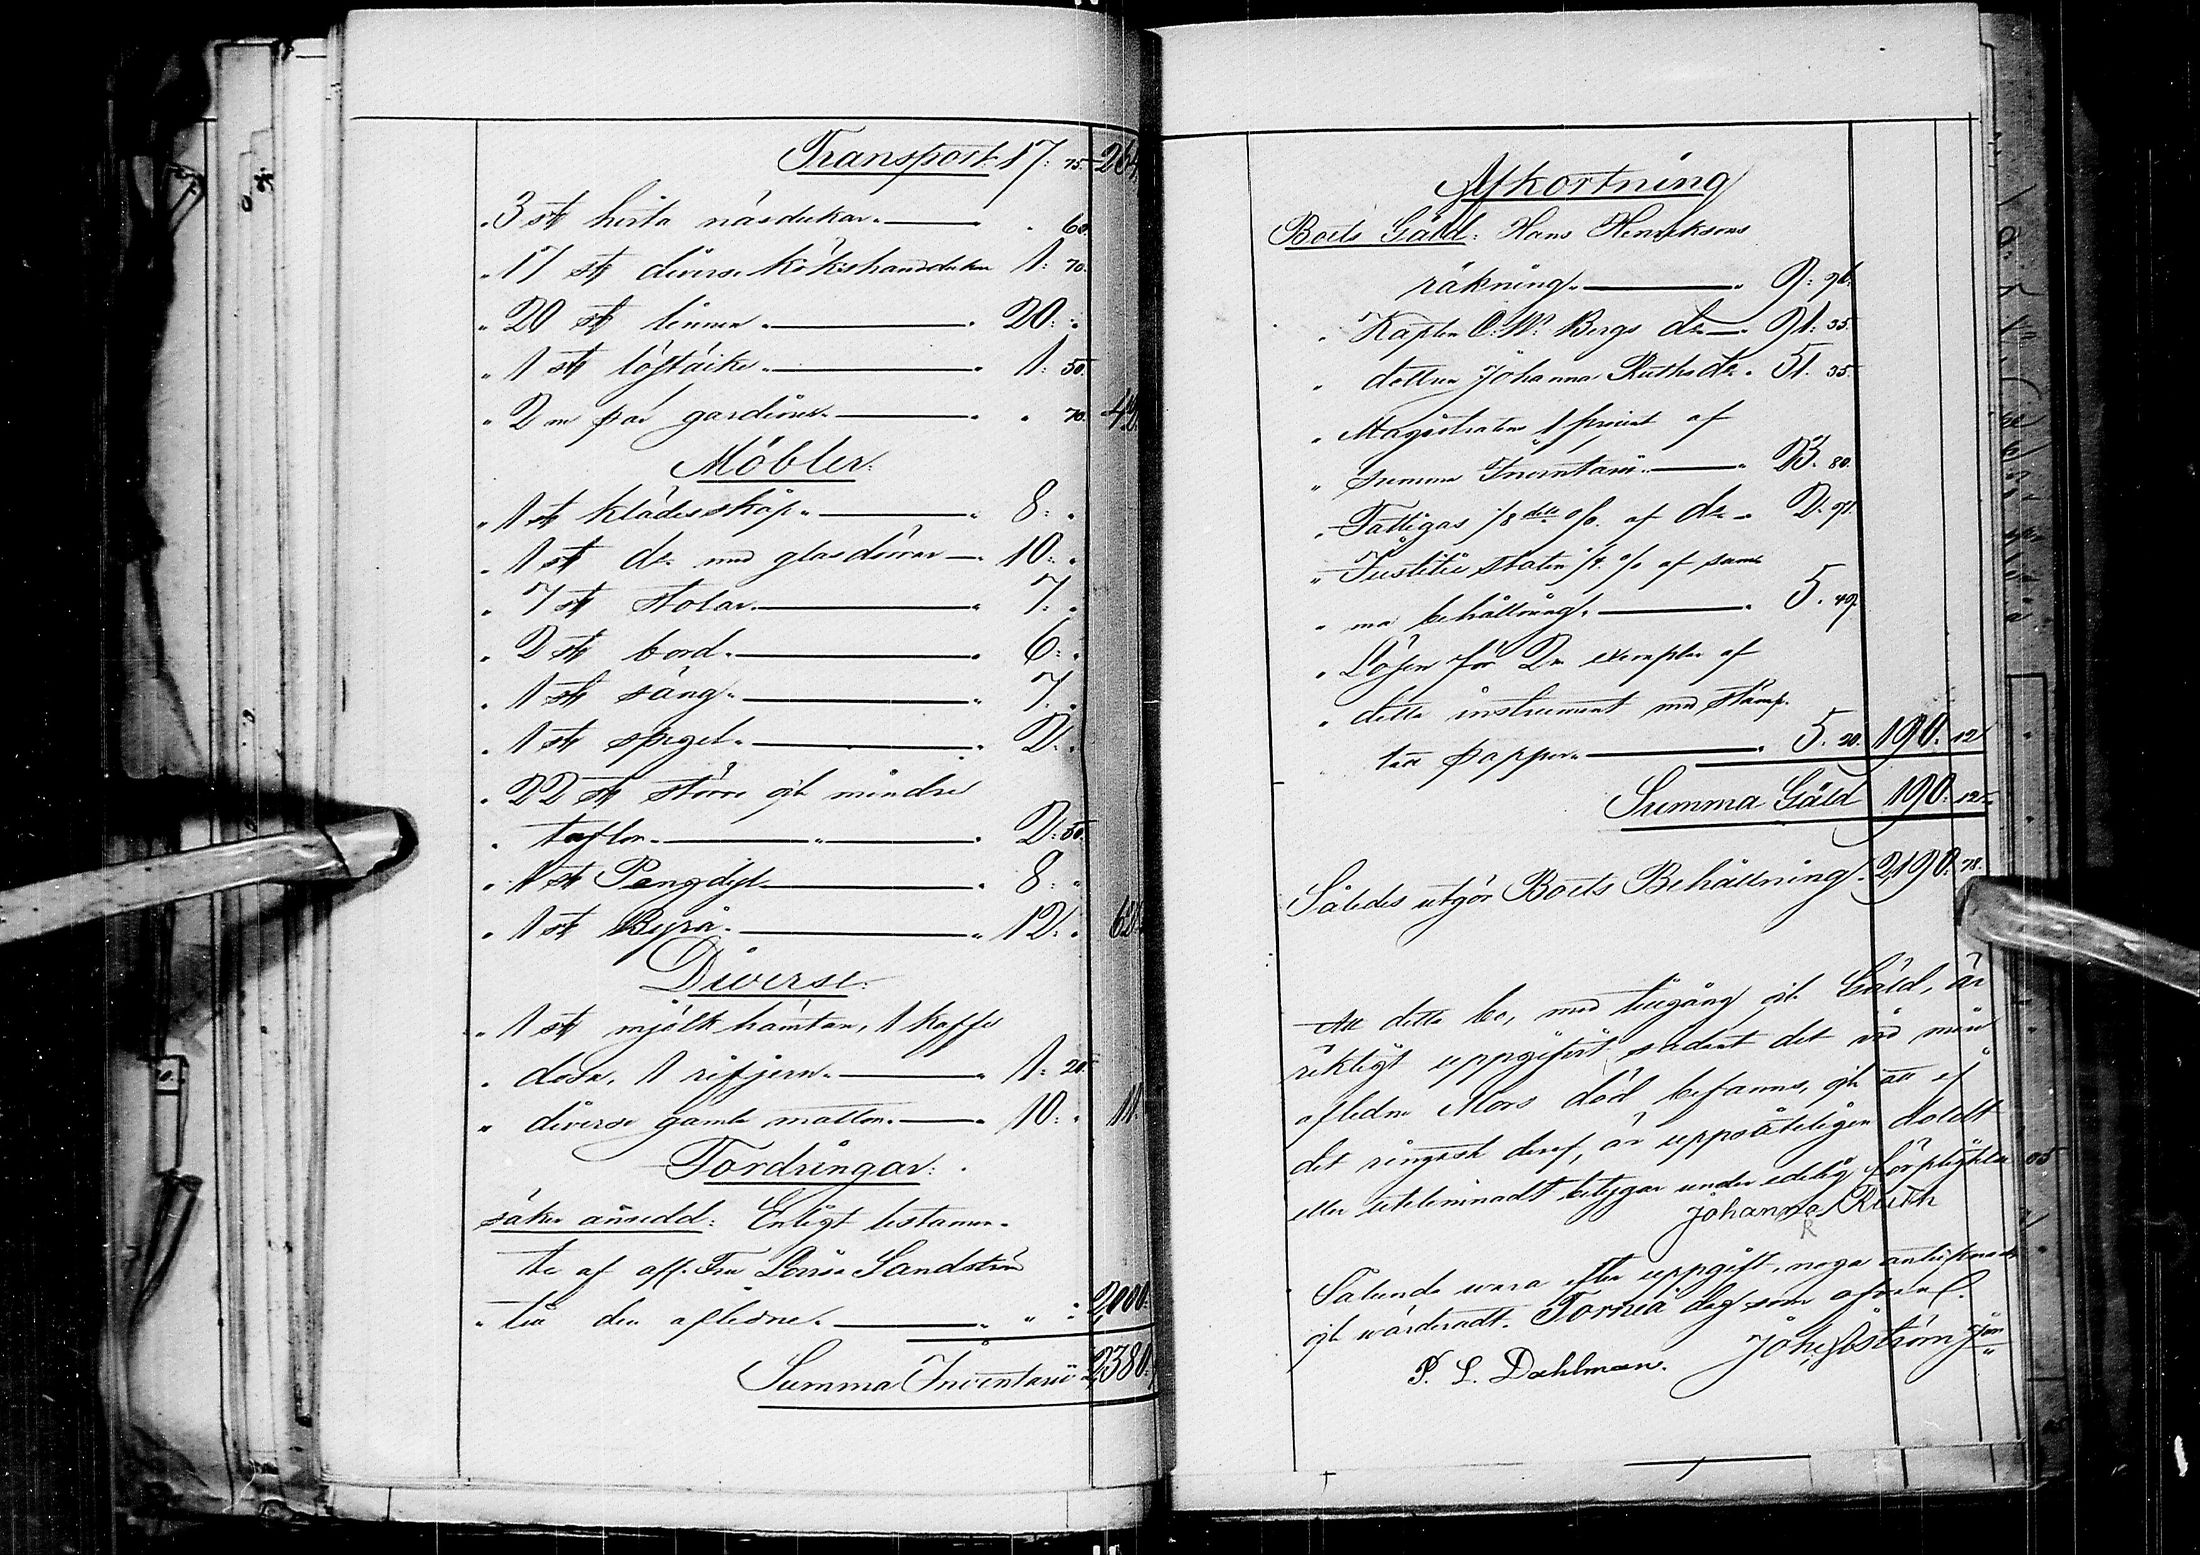 Transport 17: 75. 264
" 3 st hvita näsdukar " 60.
" 17 st diverse kökshanddukar 1: 70.
" 20 st linnen " 20: "
" 1 st löstäcke " 1: 50.
" 2 ne par gardiner " 70. 42
Möbler:
" 1 st klädesskåp " 8: "
" 1 st do med glasdörrar " 10: "
" 7 st stolar " 7: "
" 2 st bord " 6: "
" 1 st säng " 7: "
" 1 st spegel " 2: "
" 22 st större och mindre
" taflor " 2: 50.
" 1 st 8: "
" 1 st Byrå " 12: " 62
Diverse:
" 1 st mjölkhämtare, 1 kaffe
" dosa, 1 rifjern " 1: 20.
" diverse gamla mattor " 10: " 11.
Fordringar:
säker ansedd: Enligt testamen-
te af afl. Fru Lovisa Sandström
" till den aflidne " " 2,000:
Summa Inventarii 2,380:
Afkortning
Boets Gäld: Hans Henriksons
räkning " 9: 96.
" Kapten C. W. Bergs do " 91: 35.
" dottren Johanna Ruths do " 51. 35.
" Magistratens 1 procent af
" summa Inventarii " 23. 80.
" Fattigas 1/8 del % af do " 2: 97.
" Justitie staten 1/4 % af sam-
" ma behållning " 5. 49.
" Lösen för 2 ne exemplar af
" detta instrument med stämp-
lat papper " 5. 20. 190. 12
Summa Gäld 190: 12.
Således utgör Boets Behållning: 2,190: 78.
Att detta bo, med tillgång och Gäld, är
riktigt uppgifvet, sådant det vid min
aflidne Mors död befanns, och att ej
det ringaste deraf, är uppsåteligen doldt
eller utelemnadt betygar under edelig förpligtelse
Johanna Ruth
R
Sålunda vara efter uppgift, noga antecknadt
och värderadt. Torneå dag som ofvan.
P. L. Dahlman. Joh. Åström Jon